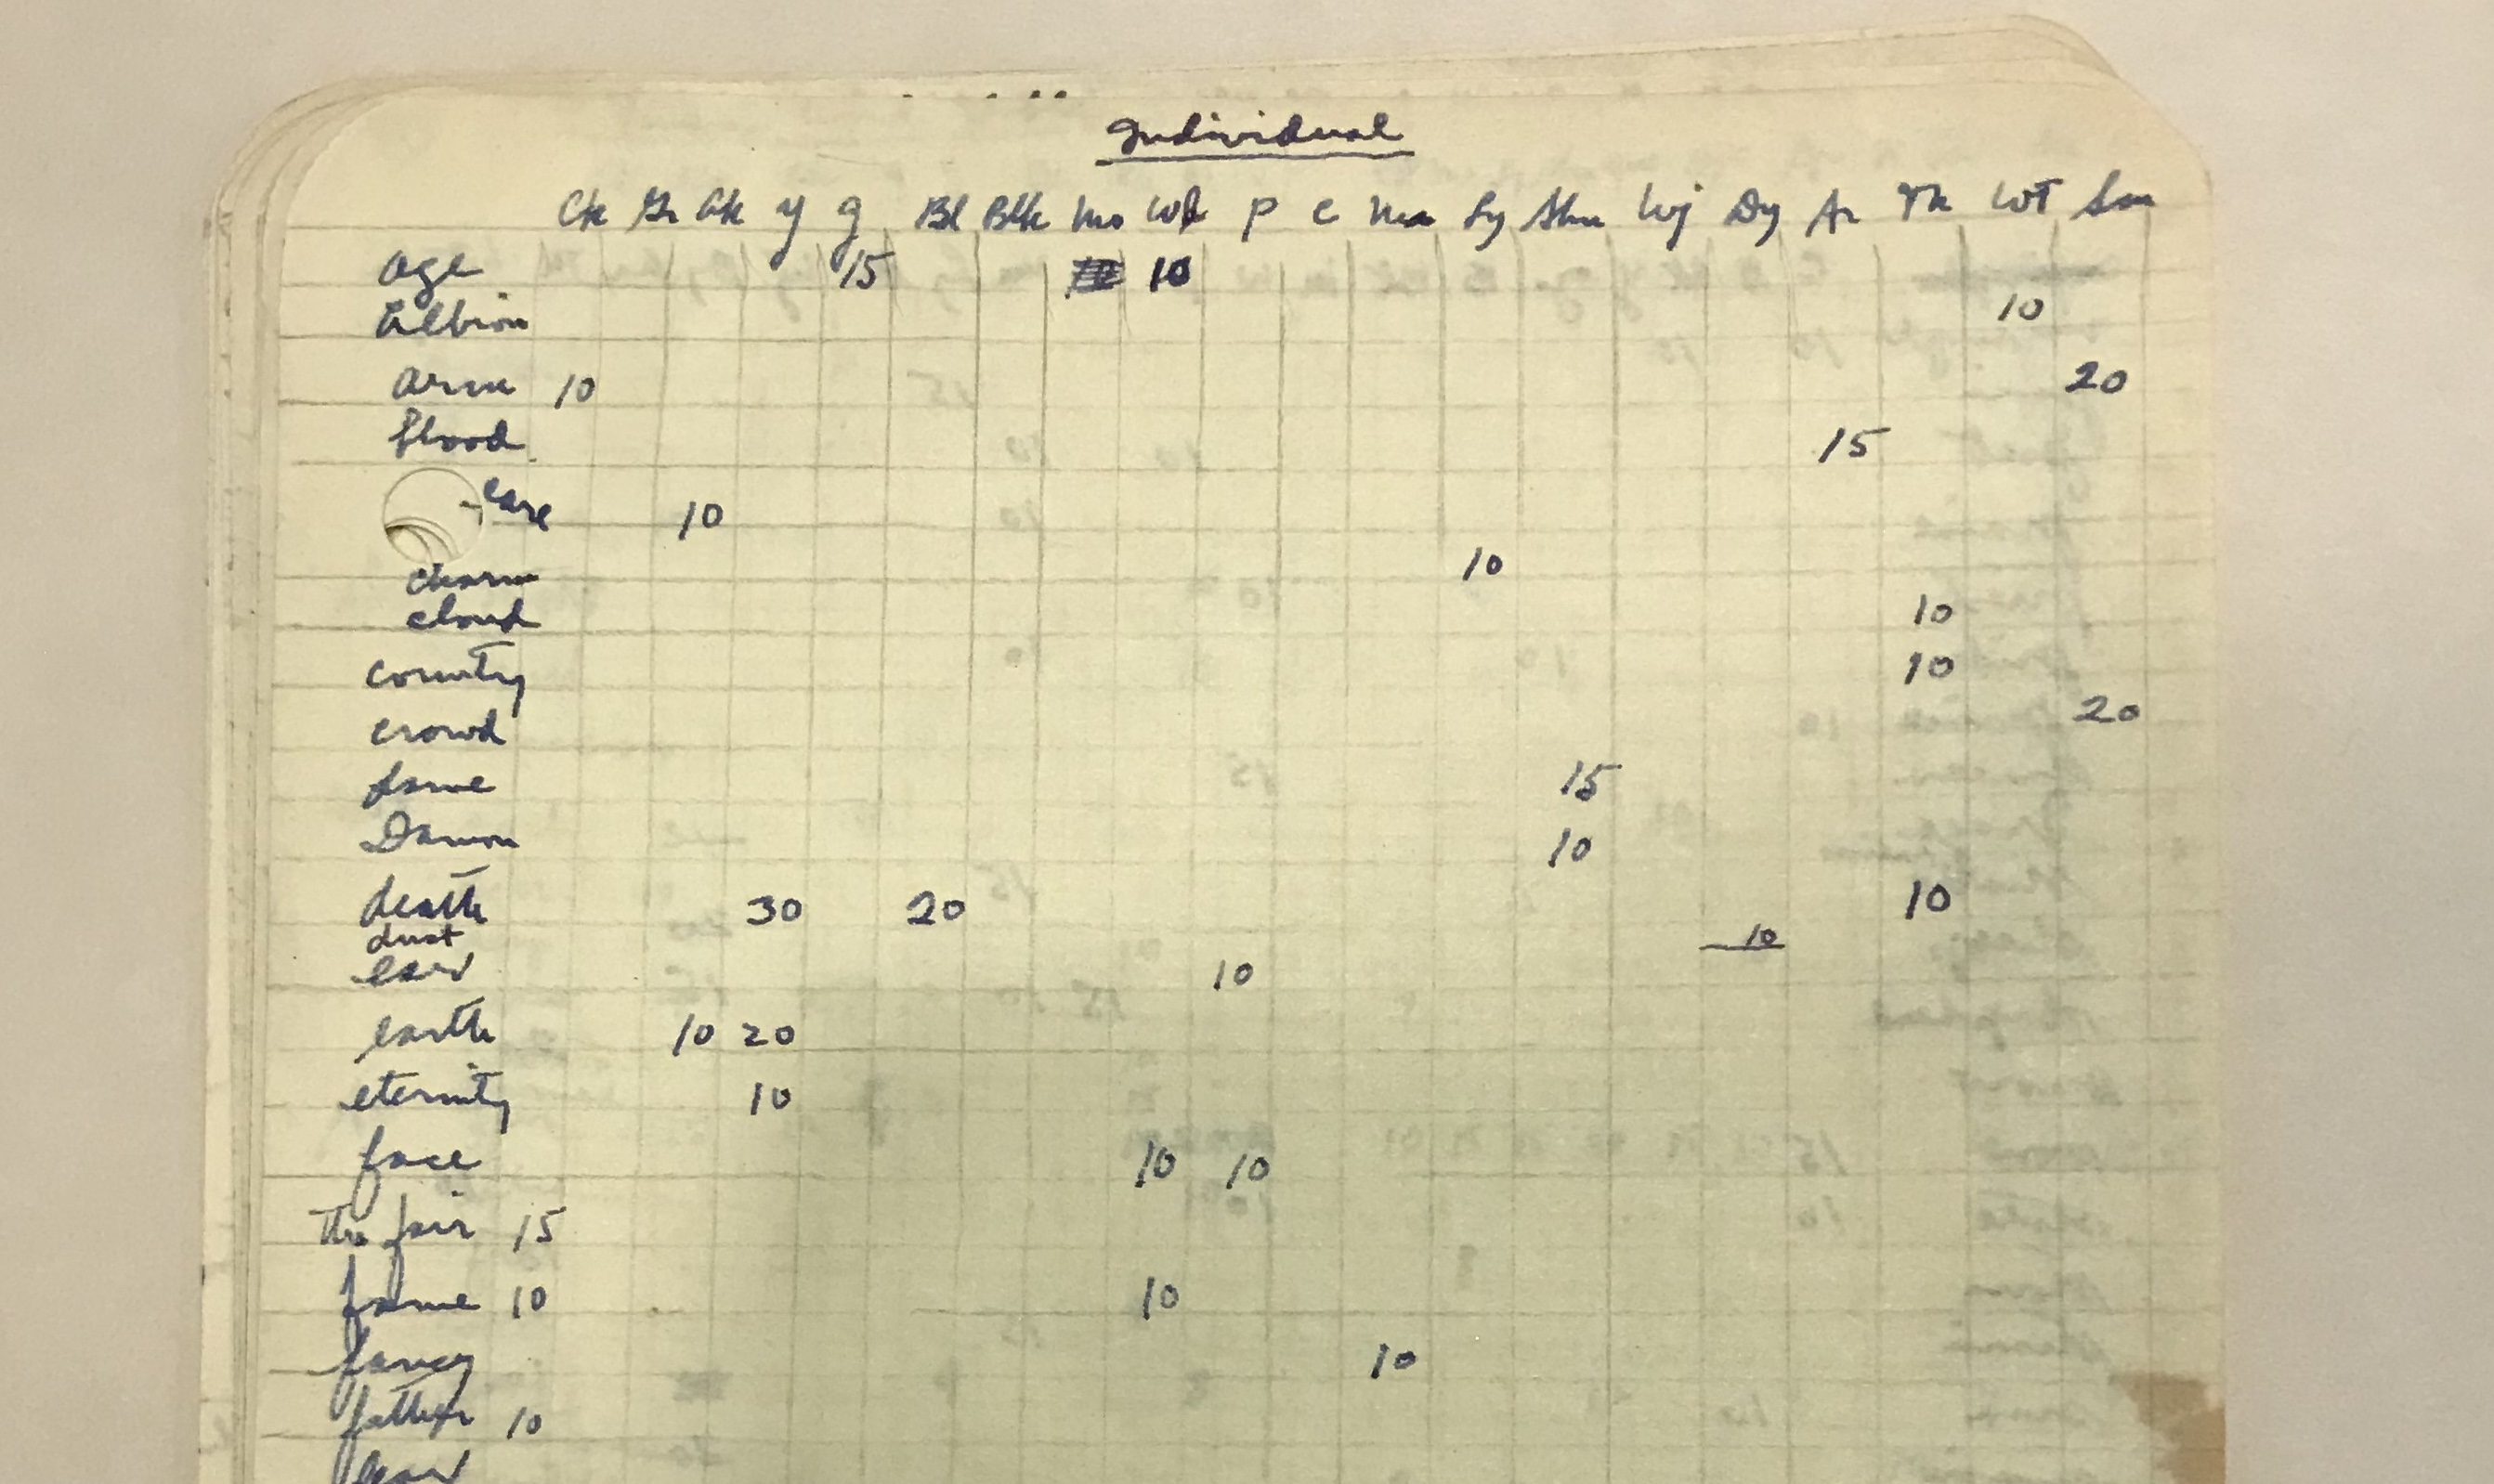 Individual
Ch Gr Ak y g Bl Blk Mo Wd p c Ma Ly Shn Wj Dy Ar Th WT Sm
age 15 10
Albion 10
arm 10 20
blood 15
care 10
charm 10
cloud 10
country 10
crowd 20
fame 15
Damon 10
death 30 20 10
dust 10
ear 10
earth 10 20
eternity 10
face 10 10
The fair 15
fame 10 10
fancy 10
father 10